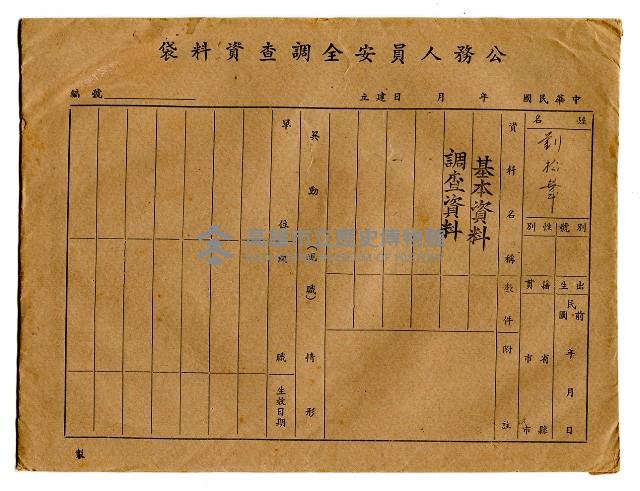 公務人員安全調查資料袋
中華民國　年　月　日建立
編號
姓名
劉松
別號
性別
出生
民國前　年　月　日
籍貫
省　縣
市　市
資料名稱
件數
附註
基本資料
調查資料
異動（現職）情形
單位
職
生效日期
製
高雄市立歷史博物館
KAOHSIUNG MUSEUM OF HISTORY